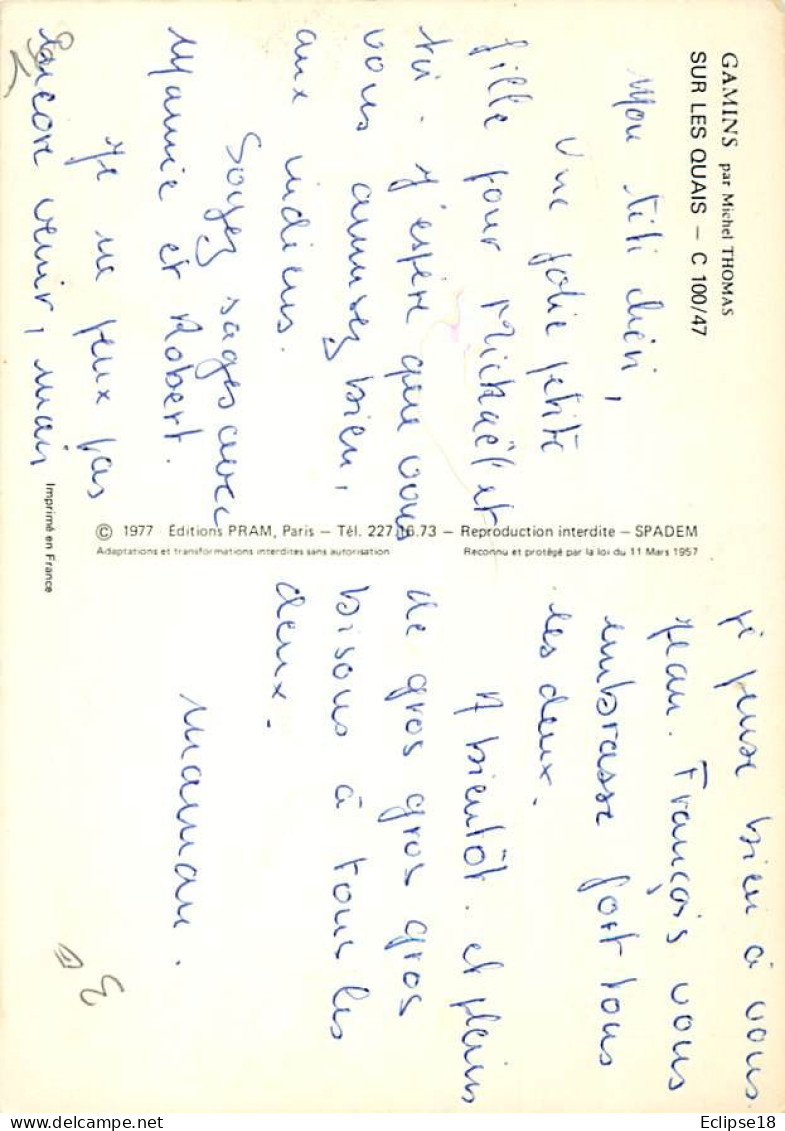 GAMINS par Michel THOMAS
SUR LES QUAIS – C 100/47
Mon titi chéri,
Une jolie petite
fille pour Mickaël et
toi. J'espère que vous
vous amusez bien,
aux indiens.
Soyez sages avec
Mamie et Robert.
Je ne peux pas
encore venir, mais
je pense bien à vous
Jean. François vous
embrasse fort tous
les deux.
A bientôt. et pleins
de gros gros gros
bisous à tous les
deux.
Maman.
© 1977 Éditions PRAM, Paris – Tél. 227.16.73 – Reproduction interdite – SPADEM
Adaptations et transformations interdites sans autorisation Reconnu et protégé par la loi du 11 Mars 1957
Imprimé en France
Eclipse18